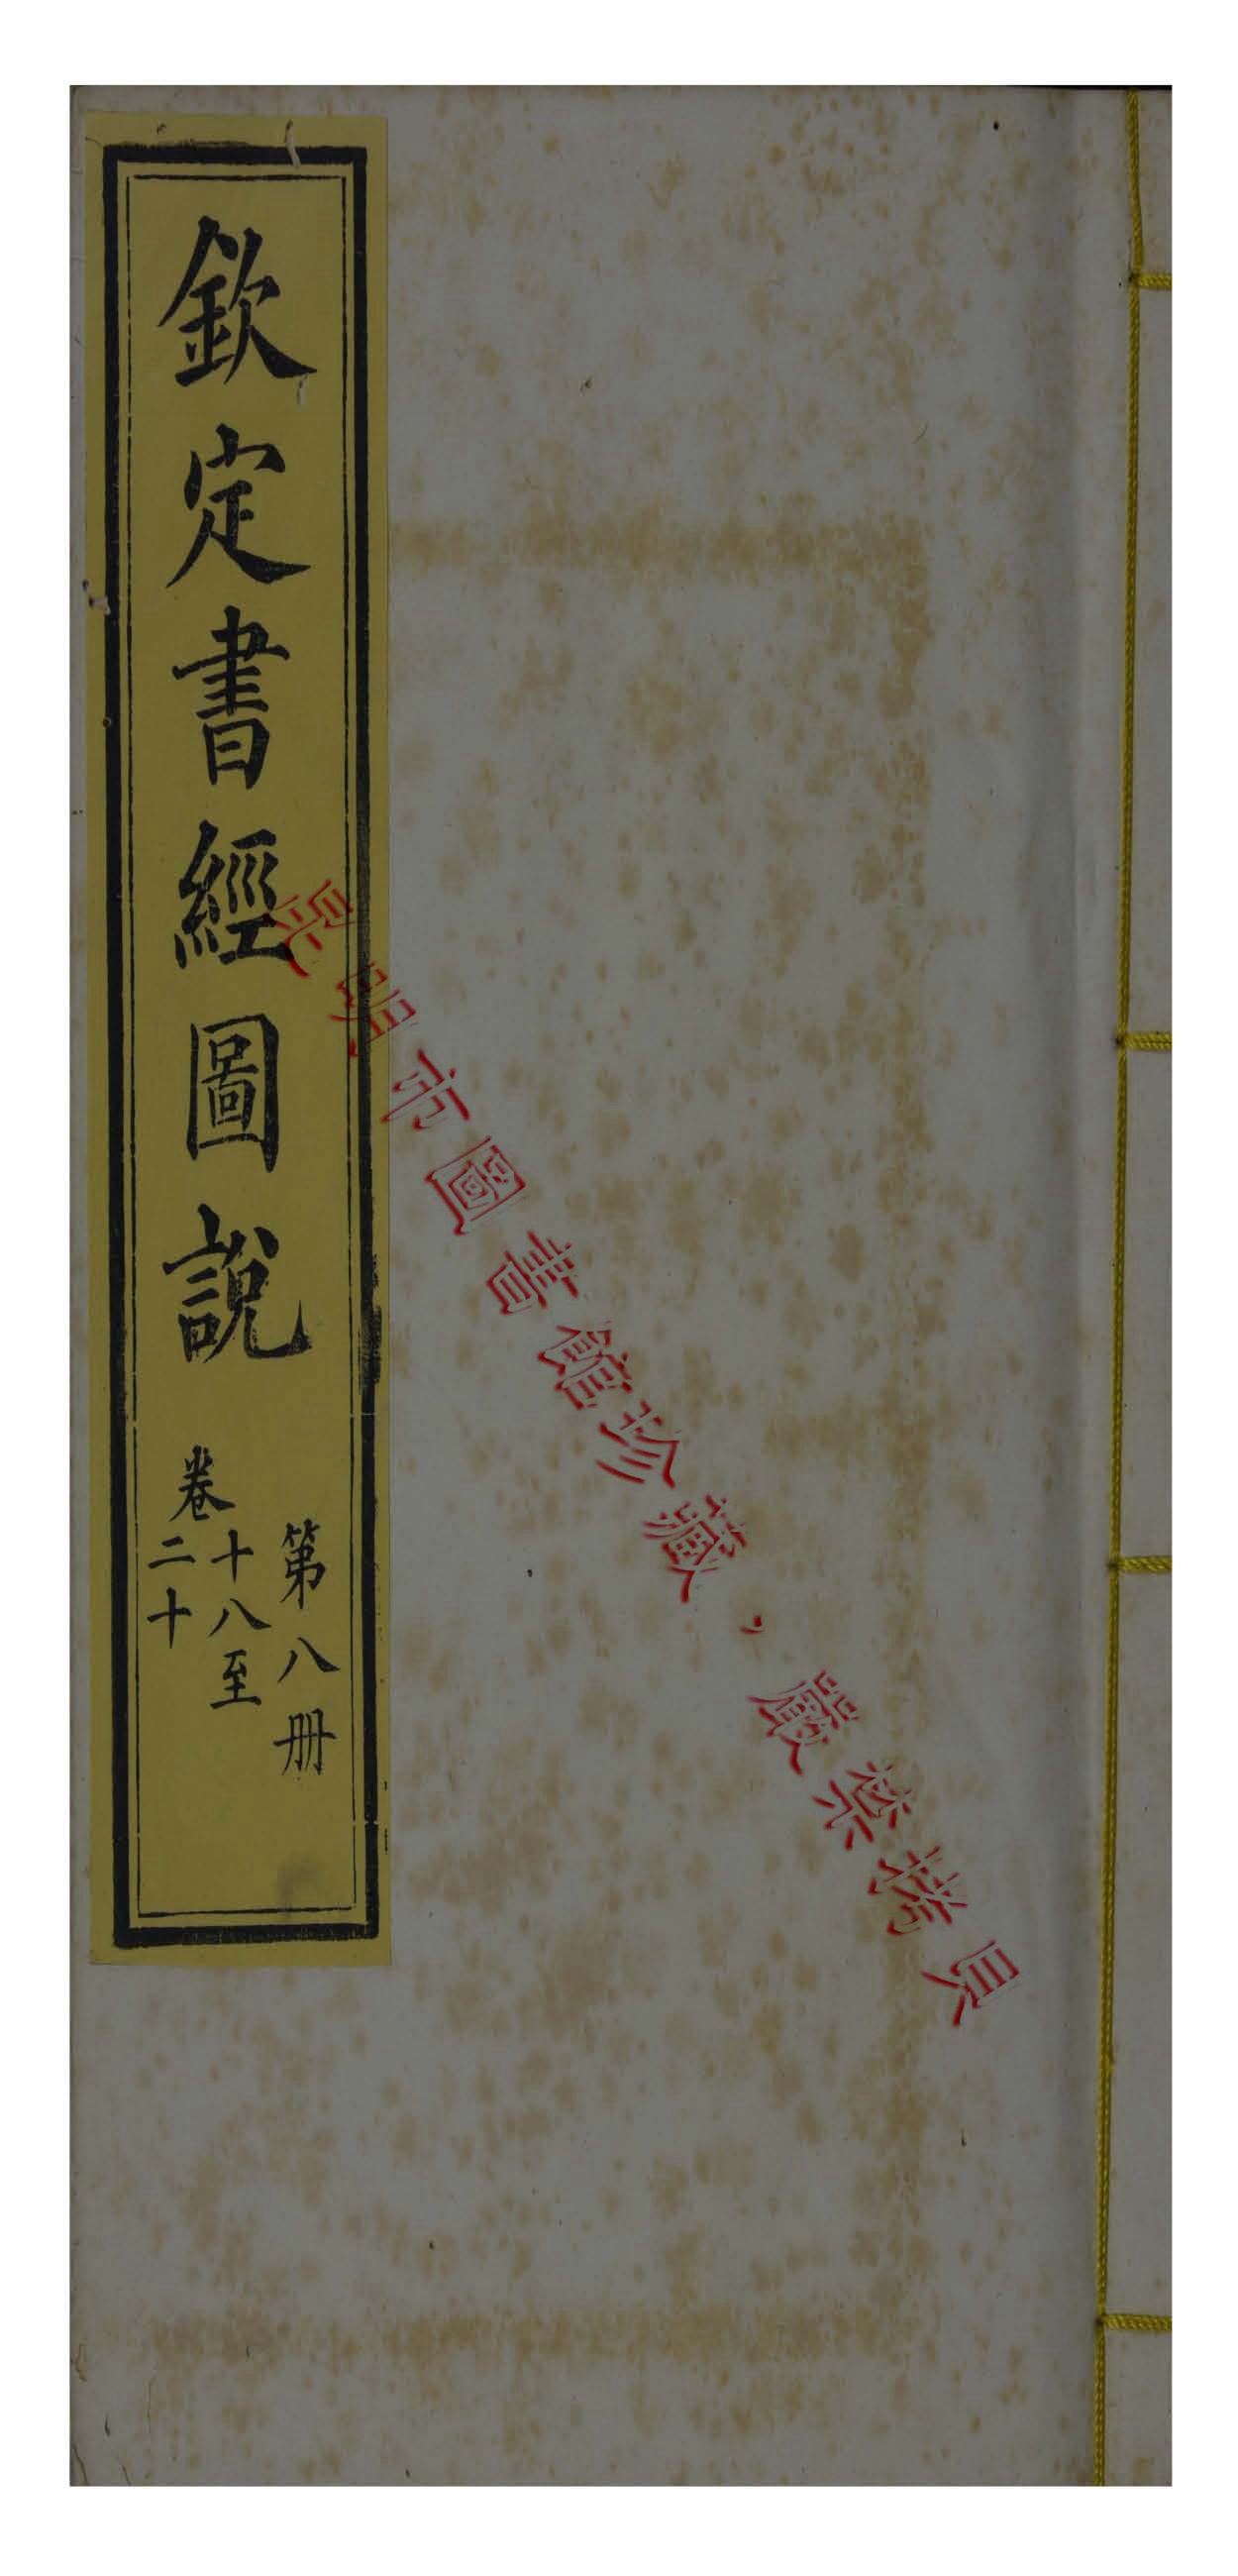 欽定書經圖說
第八册
卷十八至
二十
昆明市圖書館珍藏，嚴禁拷貝